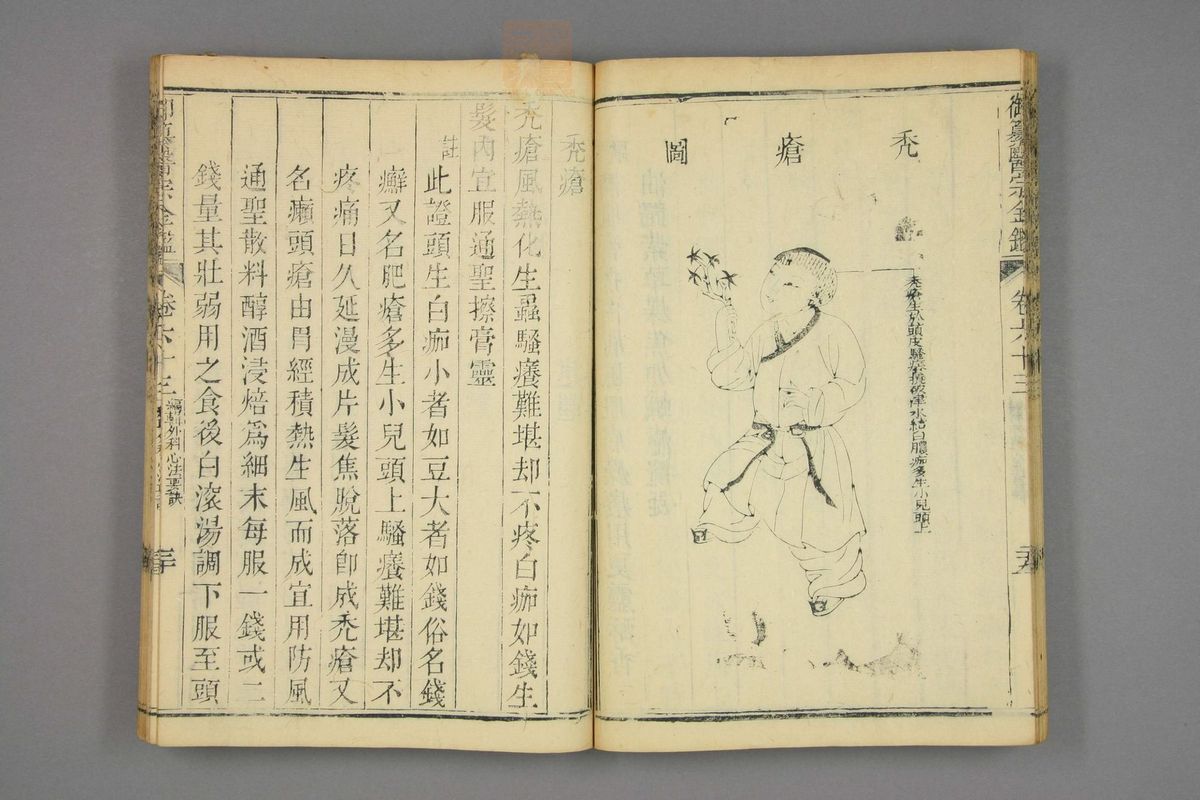 御纂醫宗金鑑 卷六十三
禿瘡圖
禿瘡生於頭皮騷痒抓破津水結白膿痂多生小兒頭上
禿瘡
禿瘡風熱化生蟲騷癢難堪却不疼白痂如錢生
髮內宜服通聖擦膏靈
註此證頭生白痂小者如豆大者如錢俗名錢
癬又名肥瘡多生小兒頭上騷癢難堪却不
疼痛日久延漫成片髮焦脫落卽成禿瘡又
名癩頭瘡由胃經積熱生風而成宜用防風
通聖散料醇酒浸焙爲細末每服一錢或二
錢量其壯弱用之食後白滾湯調下服至頭
卷六十三 編輯外科心法要訣